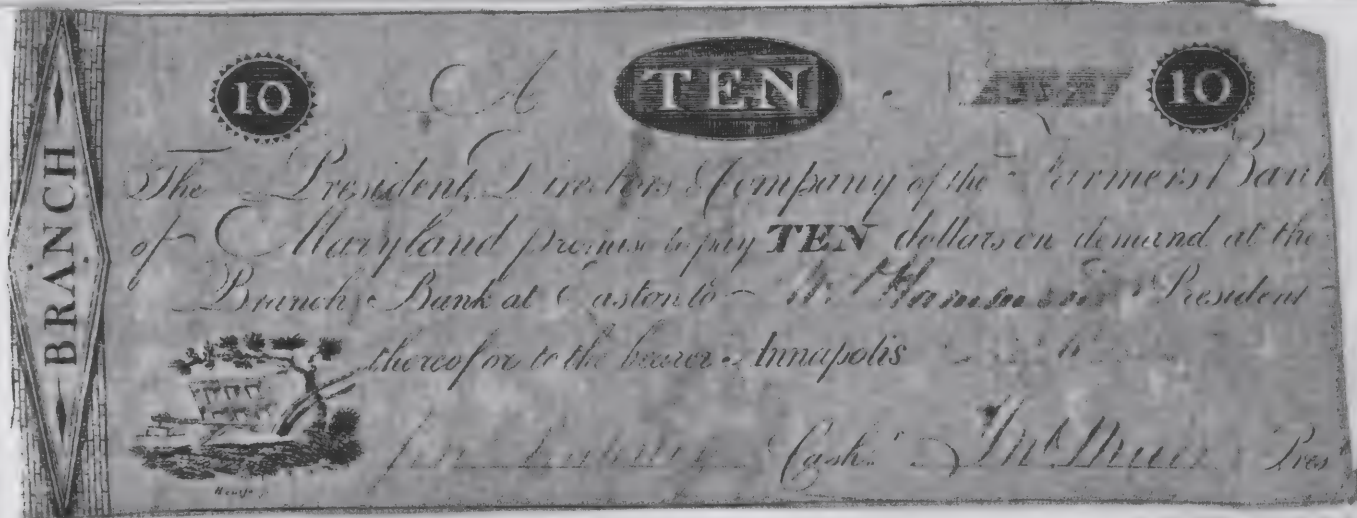 BRANCH
10 A TEN 10
The President, Directors & Company of the Farmers Bank
of Maryland promise to pay TEN dollars on demand at the
Branch Bank at Easton to Hammond President
thereof or to the bearer Annapolis
Cashr. Jno. Muir Prest